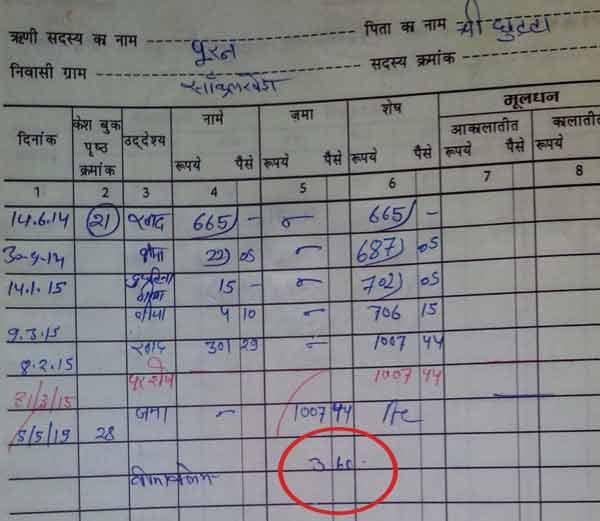 ऋणी सदस्य का नाम पूरन पिता का नाम श्री
निवासी ग्राम सदस्य क्रमांक
दिनांक केश बुक पृष्ठ क्रमांक उद्देश्य नामे जमा शेष मूलधन
रूपये पैसे रूपये पैसे रूपये पैसे आकालातीत कालातीत
रूपये पैसे रूपये
1 2 3 4 5 6 7 8
14.6.14 21 खाद 665) - - 665) -
बीमा 22) 05 - 687) 05
14.1.15 15 - - 702) 05
9.3.15 बीमा 4 10 - 706 15
8.2.15 खाद 301 29 - 1007 44
31/3/15 1007 44
5/5/15 28 जमा - 1007 44
बीमा क्लेम 360-